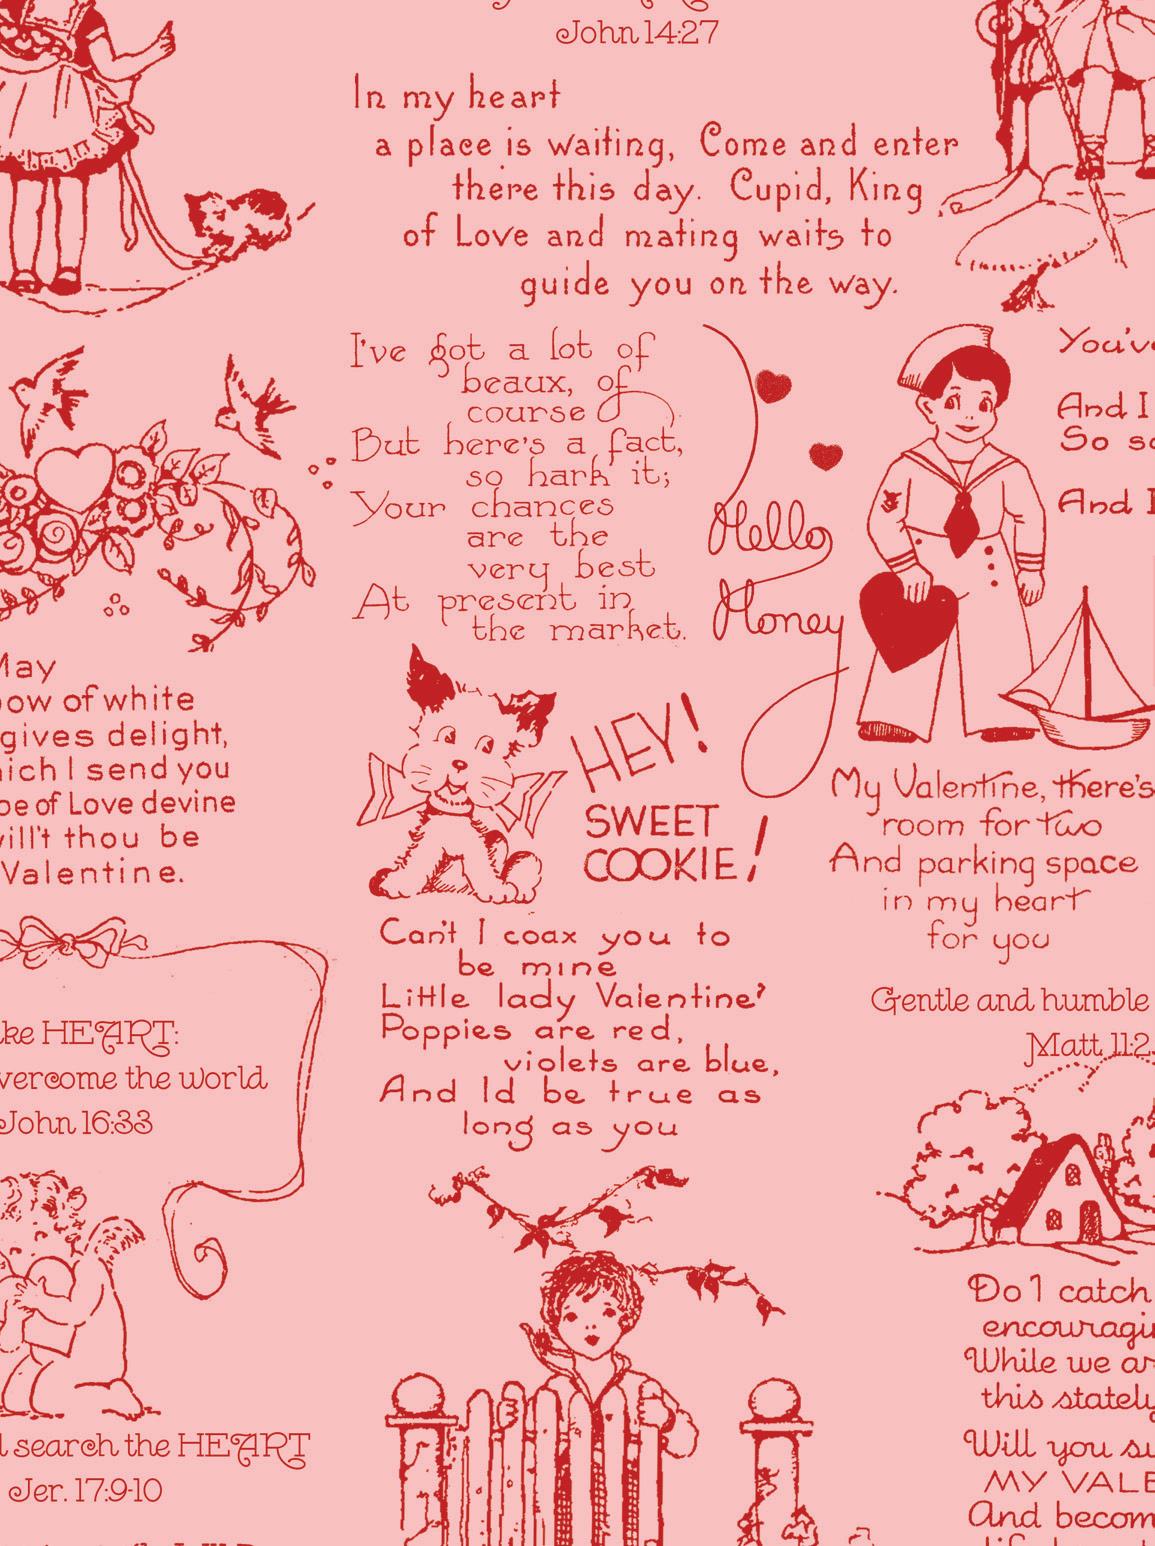 John 14:27
In my heart
a place is waiting, Come and enter
there this day. Cupid, King
of Love and mating waits to
guide you on the way.
I've got a lot of
beaux, of
course
But here's a fact,
so hark it;
Your chances
are the
very best
At present in
the market.
Hello
Honey
You've
And I
So so
And I
May
bow of white
gives delight,
hich I send you
pe of Love devine
will't thou be
Valentine.
HEY!
SWEET
COOKIE!
My Valentine, there's
room for two
And parking space
in my heart
for you
Can't I coax you to
be mine
Little lady Valentine?
Poppies are red,
violets are blue,
And Id be true as
long as you
Gentle and humble
Matt 11:2
ke HEART:
vercome the world
John 16:33
Do I catch
encouragi
While we ar
this stately
Will you su
MY VALE
And becom
d search the HEART
Jer. 17:9-10